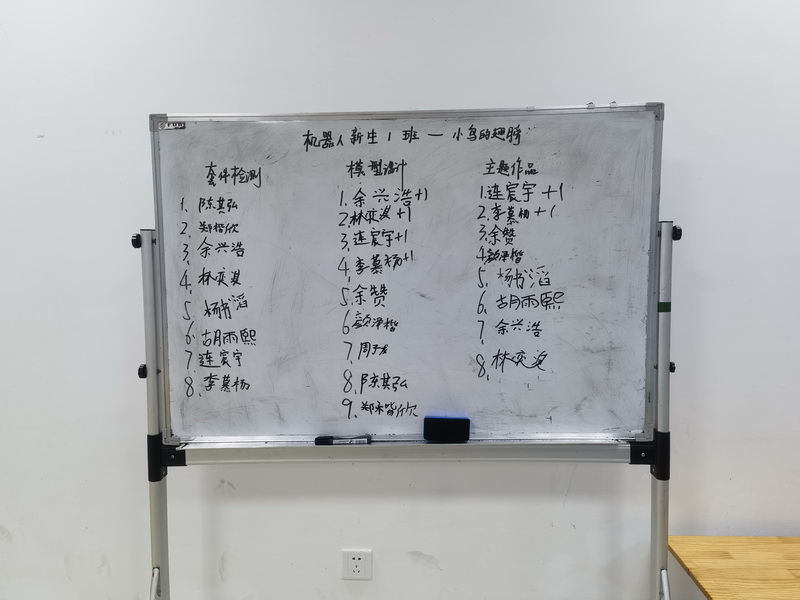 机器人新生1班一小鸟的翅膀
套件检测
1、陈其弘
2、郑楷欣
3、余兴浩
4、林奕淏
5、杨书滔
6、胡雨熙
7、连宸宇
8、李慕杨
模型设计
1、余兴浩+1
2、林奕淏+1
3、连宸宇+1
4、李慕杨+1
5、余赞
6、颜泽楷
7、周子
8、陈其弘
9、郑楷欣
主题作品
1、连宸宇+1
2、李慕杨+1
3、余赞
4、颜泽楷
5、杨书滔
6、胡雨熙
7、余兴浩
8、林奕淏